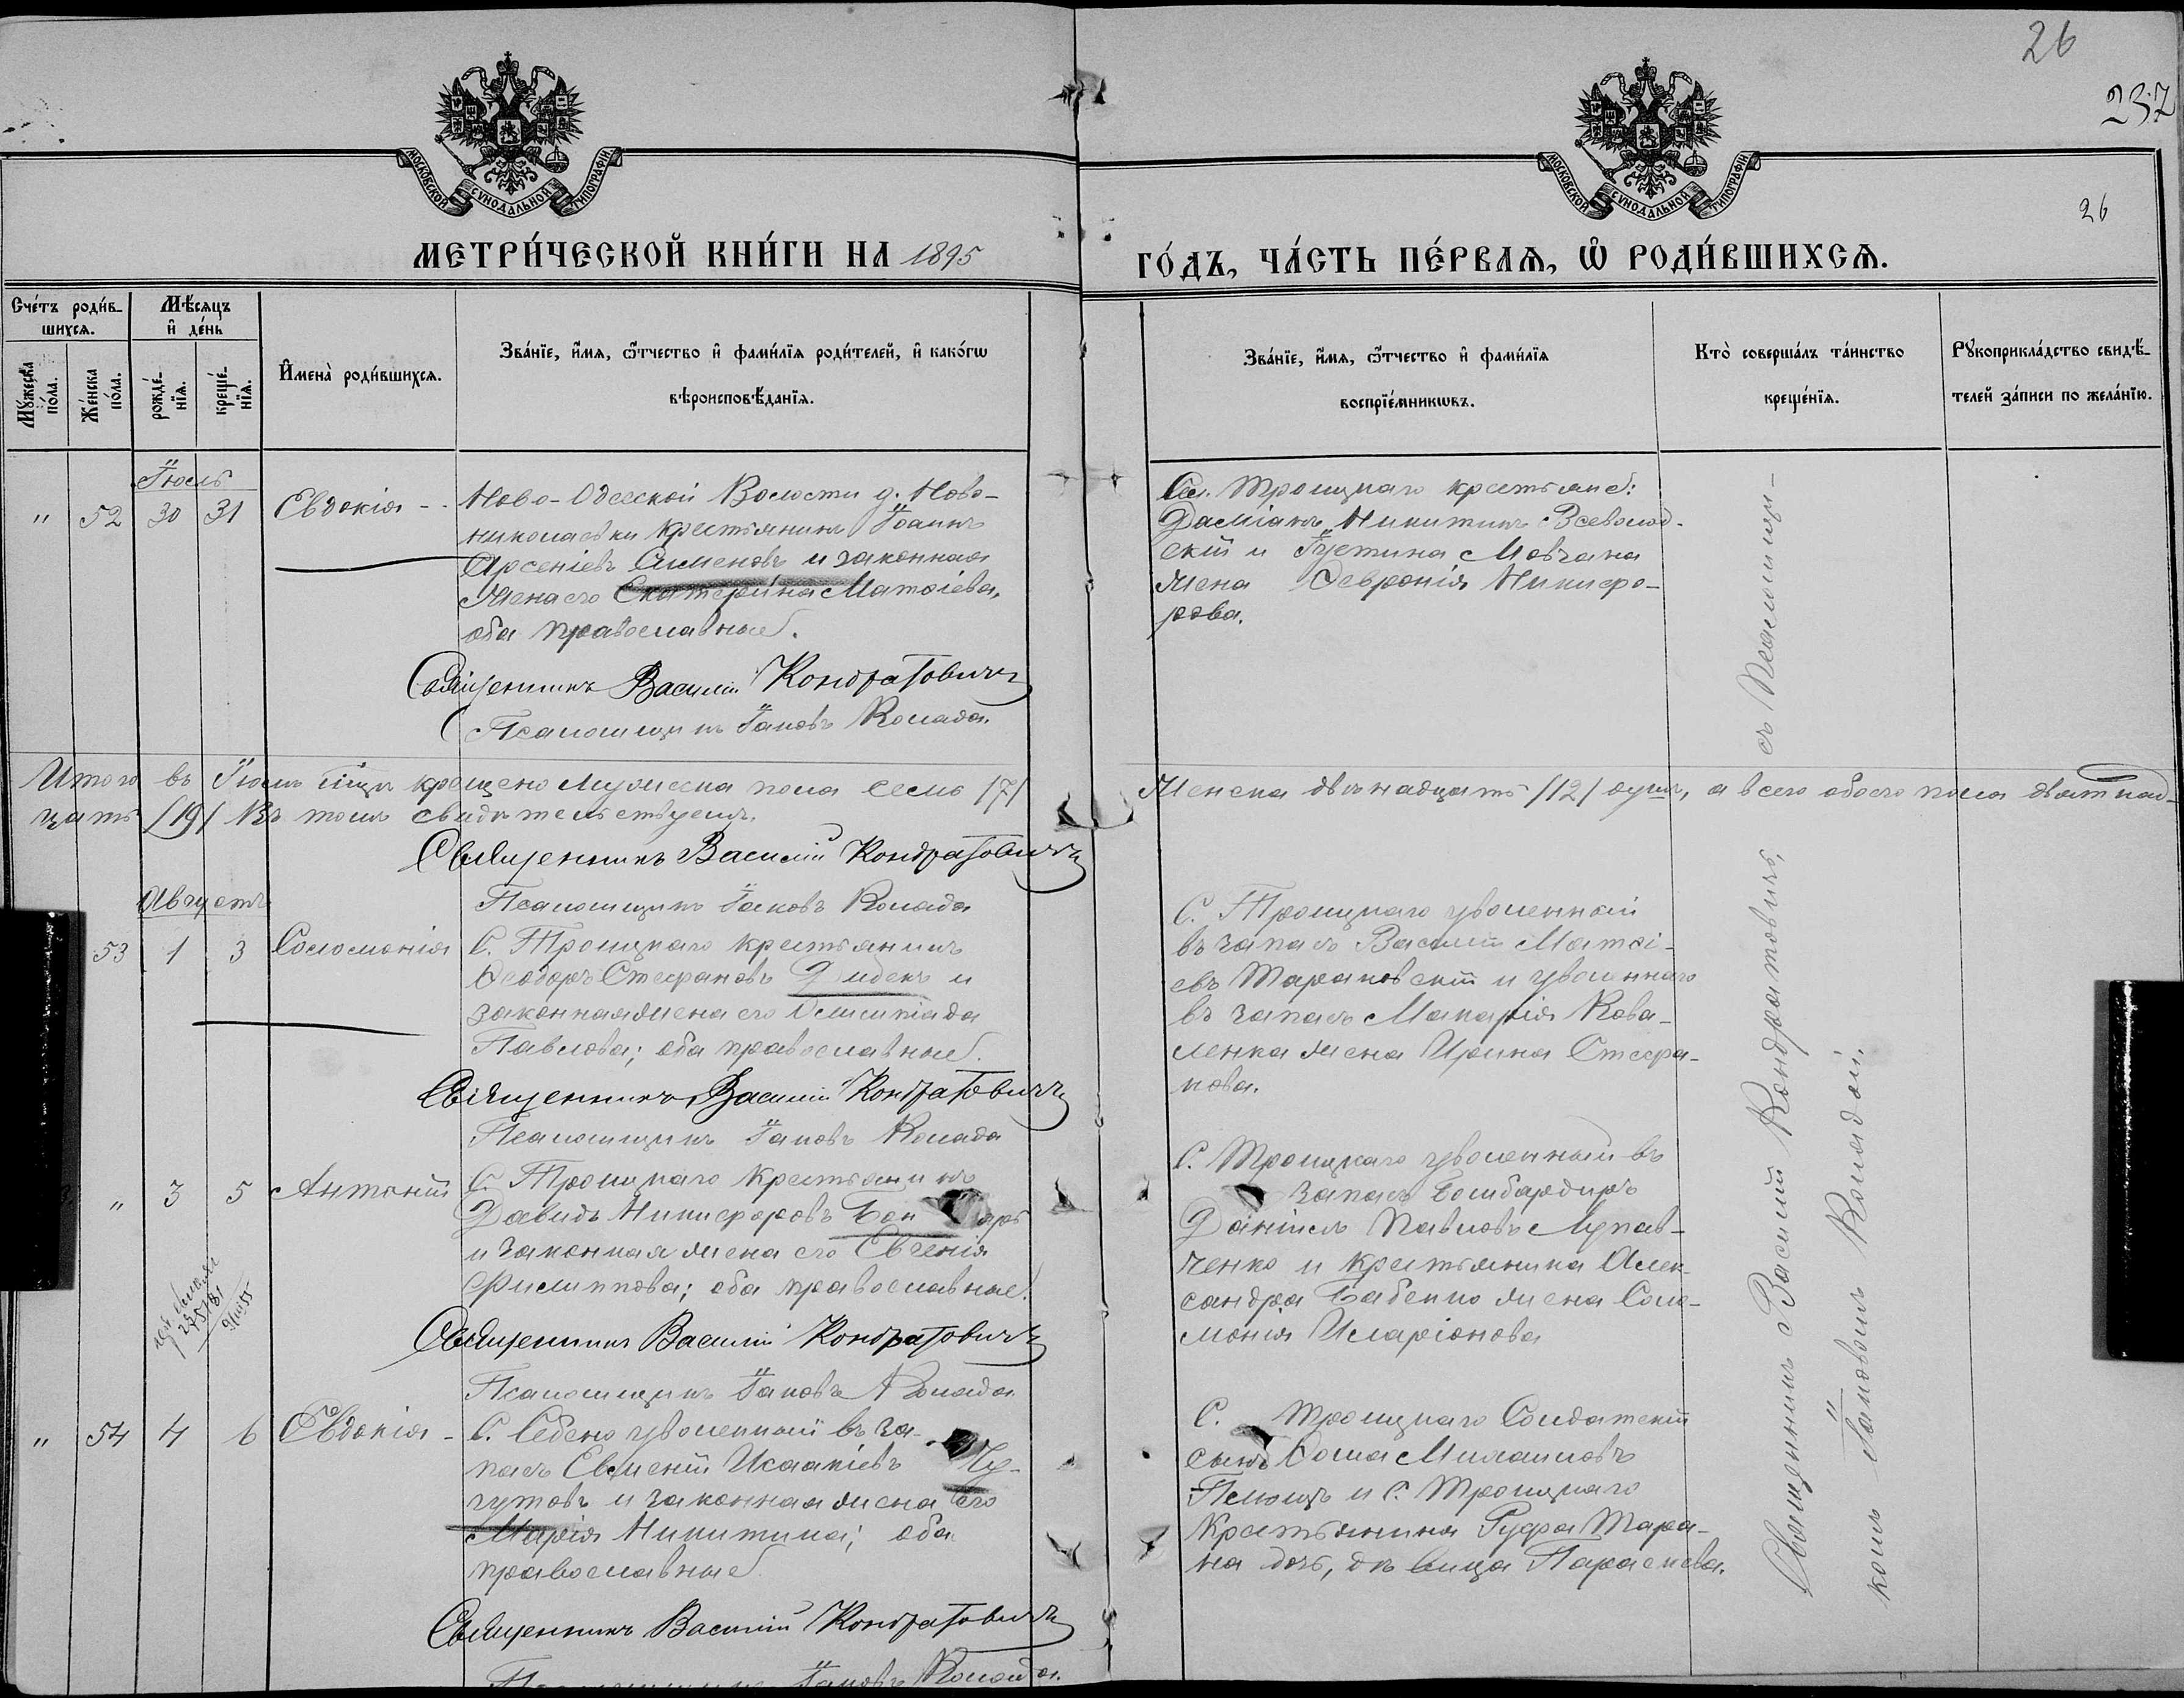 26
237
26
МОСКОВСКОЙ СѴНОДАЛЬНОЙ ТИПОГРАФІИ.
МОСКОВСКОЙ СѴНОДАЛЬНОЙ ТИПОГРАФІИ.
МЕТРИ́ЧЕСКОЙ КНИ́ГИ НА 1895
ГО́ДЪ, ЧА́СТЬ ПЕ́РВАѦ, Ѽ РОДИ́ВШИХСѦ.
Сче́тъ роди́в-
шихсѧ.
Мꙋ́жеска
по́ла.
Же́нска
по́ла.
Мѣ́сѧцъ
и҆ де́нь
рожде́-
нїѧ.
креще́-
нїѧ.
И҆мена̀ роди́вшихсѧ.
Зва́нїе, и҆́мѧ, ѻ҆́тчество и҆ фами́лїѧ роди́телей, и҆ како́гѡ
вѣроисповѣ́данїѧ.
Зва́нїе, и҆́мѧ, ѻ҆́тчество и҆ фами́лїѧ
воспрїе́мникѡвъ.
Кто̀ соверша́лъ та́инство
креще́нїѧ.
Рꙋкоприкла́дство свидѣ́-
телей за́писи по жела́нїю.
Іюль
" 52 30 31 Евдокія -
Ново-Одесской Волости д. Ново-
николаевки крестьянинъ Іоаннъ
Арсеніевъ Сименовъ и законная
жена его Екатерина Матѳіева,
оба православные.
Священникъ Василій Кондратовичъ
Псаломщикъ Іаковъ Колада.
Сел. Троицкаго крестьяне:
Даміанъ Никитинъ Всеволод-
скій и Іустина Мовчана
жена Февронія Никифо-
рова.
Итого въ Іюлѣ мцѣ крещено мужеска пола семь /7/
Женска двѣнадцать /12/ душъ, а всего обоего пола девятнад-
цать /19/ Въ томъ свидѣтельствуемъ.
Священникъ Василій Кондратовичъ
Псаломщикъ Іаковъ Колада
Августъ
53 1 3 Соломонія
С. Троицкаго крестьянинъ
Ѳеодоръ Стефановъ Дидекъ и
законная жена его Олимпіада
Павлова; оба православные.
Священникъ Василій Кондратовичъ
Псаломщикъ Іаковъ Колада
С. Троицкаго уволенный
въ запасъ Василій Матѳі-
евъ Тарановскій и уволеннаго
въ запасъ Макарія Кова-
ленка жена Ирина Стефа-
нова.
" 3 5 Антоній
С. Троицкаго крестьянинъ
Давидъ Никифоровъ
и законная жена его Евгенія
Филиппова; оба православные.
Священникъ Василій Кондратовичъ
Псаломщикъ Іаковъ Колада
С. Троицкаго уволенный въ
запасъ бомбардиръ
Даніилъ Павловъ Лупав-
ченко и крестьянина Алек-
сандра Бабенко жена Соло-
монія Иларіонова
" 54 4 6 Евдокія -
С. Себено уволенный въ за-
пасъ Евменій Исаакіевъ Чу-
гутовъ и законная жена его
Марія Никитина; оба
православные
Священникъ Василій Кондратовичъ
Іаковъ Колада.
С. Троицкаго Солдатскій
сынъ Ѳома Михаиловъ
Плющъ и С. Троицкаго
крестьянина Руфа Тара-
на дочь, дѣвица Параскева.
Священникъ Василій Кондратовичъ, съ Псаломщи-
комъ Іаковомъ Коладой.